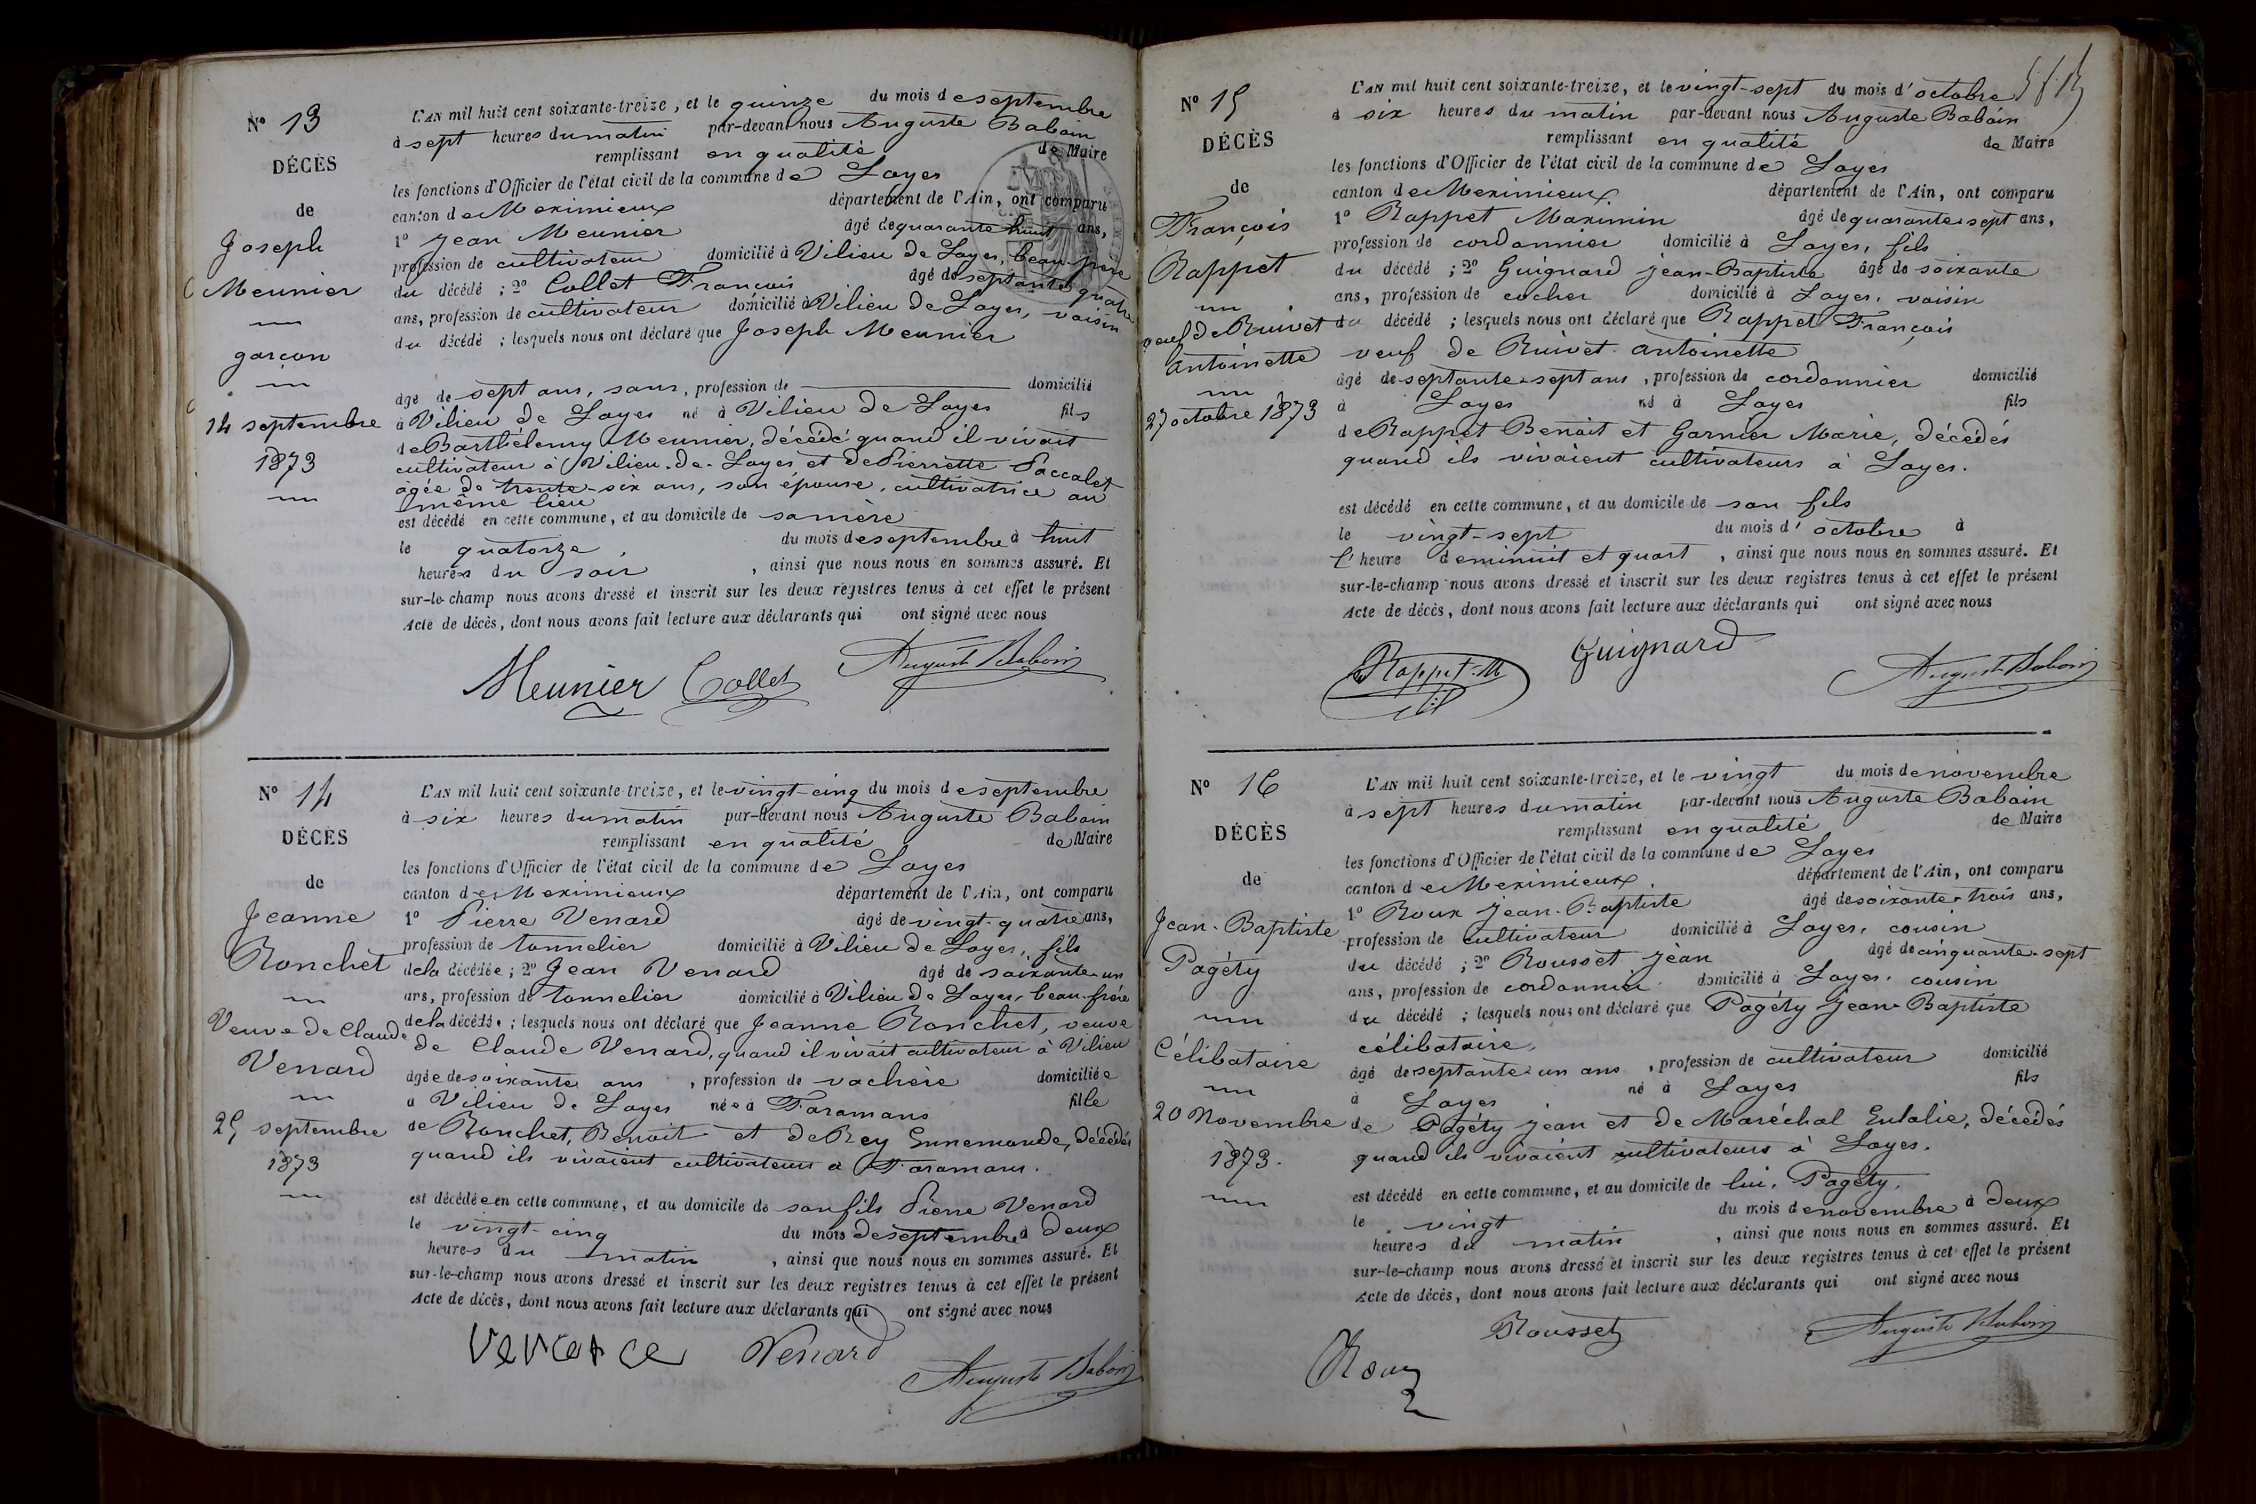 N° 13
DÉCÈS
de
Joseph
Meunier
garçon
14 septembre
1873
L'AN mil huit cent soixante-treize, et le quinze du mois de septembre
à sept heures du matin par-devant nous Auguste Baboin
remplissant en qualité de Maire
les fonctions d'Officier de l'état civil de la commune de Loyes
canton de Meximieux département de l'Ain, ont comparu
1° Jean Meunier âgé de quarante huit ans,
profession de cultivateur domicilié à Vilieu de Loyes, beau-père
du décédé ; 2° Collet François âgé de septante quatre
ans, profession de cultivateur domicilié à Vilieu de Loyes, voisin
du décédé ; lesquels nous ont déclaré que Joseph Meunier
âgé de sept ans, sans, profession de domicilié
à Vilieu de Loyes né à Vilieu de Loyes fils
de Barthélemy Meunier, décédé quand il vivait
cultivateur à Vilieu-de-Loyes et de Pierrette Paccalet
âgée de trente-six ans, son épouse, cultivatrice au
même lieu
est décédé en cette commune, et au domicile de sa mère
le quatorze, du mois de septembre à huit
heures du soir, ainsi que nous nous en sommes assuré. Et
sur-le-champ nous avons dressé et inscrit sur les deux registres tenus à cet effet le présent
Acte de décès, dont nous avons fait lecture aux déclarants qui ont signé avec nous
Meunier Collet Auguste Baboin
N° 14
DÉCÈS
de
Jeanne
Ronchet
Veuve de Claude
Venard
25 septembre
1873
L'AN mil huit cent soixante-treize, et le vingt-cinq du mois de septembre
à six heures du matin par-devant nous Auguste Baboin
remplissant en qualité de Maire
les fonctions d'Officier de l'état civil de la commune de Loyes
canton de Meximieux département de l'Ain, ont comparu
1° Pierre Venard âgé de vingt-quatre ans,
profession de tonnelier domicilié à Vilieu de Loyes, fils
de la décédée ; 2° Jean Venard âgé de soixante-un
ans, profession de tonnelier domicilié à Vilieu de Loyes, beau-frère
de la décédée ; lesquels nous ont déclaré que Jeanne Ronchet, veuve
de Claude Venard, quand il vivait cultivateur à Vilieu
âgée de soixante ans, profession de vachère domiciliée
à Vilieu de Loyes née à Faramans fille
de Ronchet, Benoit et de Rey Ennemonde, décédés
quand ils vivaient cultivateurs à Faramans.
est décédée en cette commune, et au domicile de son fils Pierre Venard
le vingt-cinq du mois de septembre à deux
heures du matin, ainsi que nous nous en sommes assuré. Et
sur-le-champ nous avons dressé et inscrit sur les deux registres tenus à cet effet le présent
Acte de décès, dont nous avons fait lecture aux déclarants qui ont signé avec nous
Venard Auguste Baboin
N° 15
DÉCÈS
de
François
Rappet
veuf de Ruivet
Antoinette
27 octobre 1873
L'AN mil huit cent soixante-treize, et le vingt-sept du mois d'octobre
à six heures du matin par-devant nous Auguste Baboin
remplissant en qualité de Maire
les fonctions d'Officier de l'état civil de la commune de Loyes
canton de Meximieux département de l'Ain, ont comparu
1° Rappet Maximin âgé de quarante-sept ans,
profession de cordonnier domicilié à Loyes, fils
du décédé ; 2° Guignard Jean-Baptiste âgé de soixante
ans, profession de cocher domicilié à Loyes, voisin
du décédé ; lesquels nous ont déclaré que Rappet François
veuf de Ruivet antoinette
âgé de septante-sept ans, profession de cordonnier domicilié
à Loyes né à Loyes fils
de Rappet Benoit et Garnier Marie, décédés
quand ils vivaient cultivateurs à Loyes.
est décédé en cette commune, et au domicile de son fils
le vingt-sept du mois d'octobre à
l'heure de minuit et quart, ainsi que nous nous en sommes assuré. Et
sur-le-champ nous avons dressé et inscrit sur les deux registres tenus à cet effet le présent
Acte de décès, dont nous avons fait lecture aux déclarants qui ont signé avec nous
Rappet. M Guignard Auguste Baboin
N° 16
DÉCÈS
de
Jean-Baptiste
Pagéty
Célibataire
20 Novembre
1873.
L'AN mil huit cent soixante-treize, et le vingt du mois de novembre
à sept heures du matin par-devant nous Auguste Baboin
remplissant en qualité de Maire
les fonctions d'Officier de l'état civil de la commune de Loyes
canton de Meximieux département de l'Ain, ont comparu
1° Roux Jean-Baptiste âgé de soixante-trois ans,
profession de cultivateur domicilié à Loyes, cousin
du décédé ; 2° Rousset Jean âgé de cinquante-sept
ans, profession de cordonnier domicilié à Loyes, cousin
du décédé ; lesquels nous ont déclaré que Pagéty Jean-Baptiste
célibataire,
âgé de septante-un ans, profession de cultivateur domicilié
à Loyes né à Loyes fils
de Pagéty Jean et de Maréchal Eulalie, décédés
quand ils vivaient cultivateurs à Loyes.
est décédé en cette commune, et au domicile de lui, Pagéty,
le vingt du mois de novembre à deux
heures du matin, ainsi que nous nous en sommes assuré. Et
sur-le-champ nous avons dressé et inscrit sur les deux registres tenus à cet effet le présent
Acte de décès, dont nous avons fait lecture aux déclarants qui ont signé avec nous
Roux Rousset Auguste Baboin